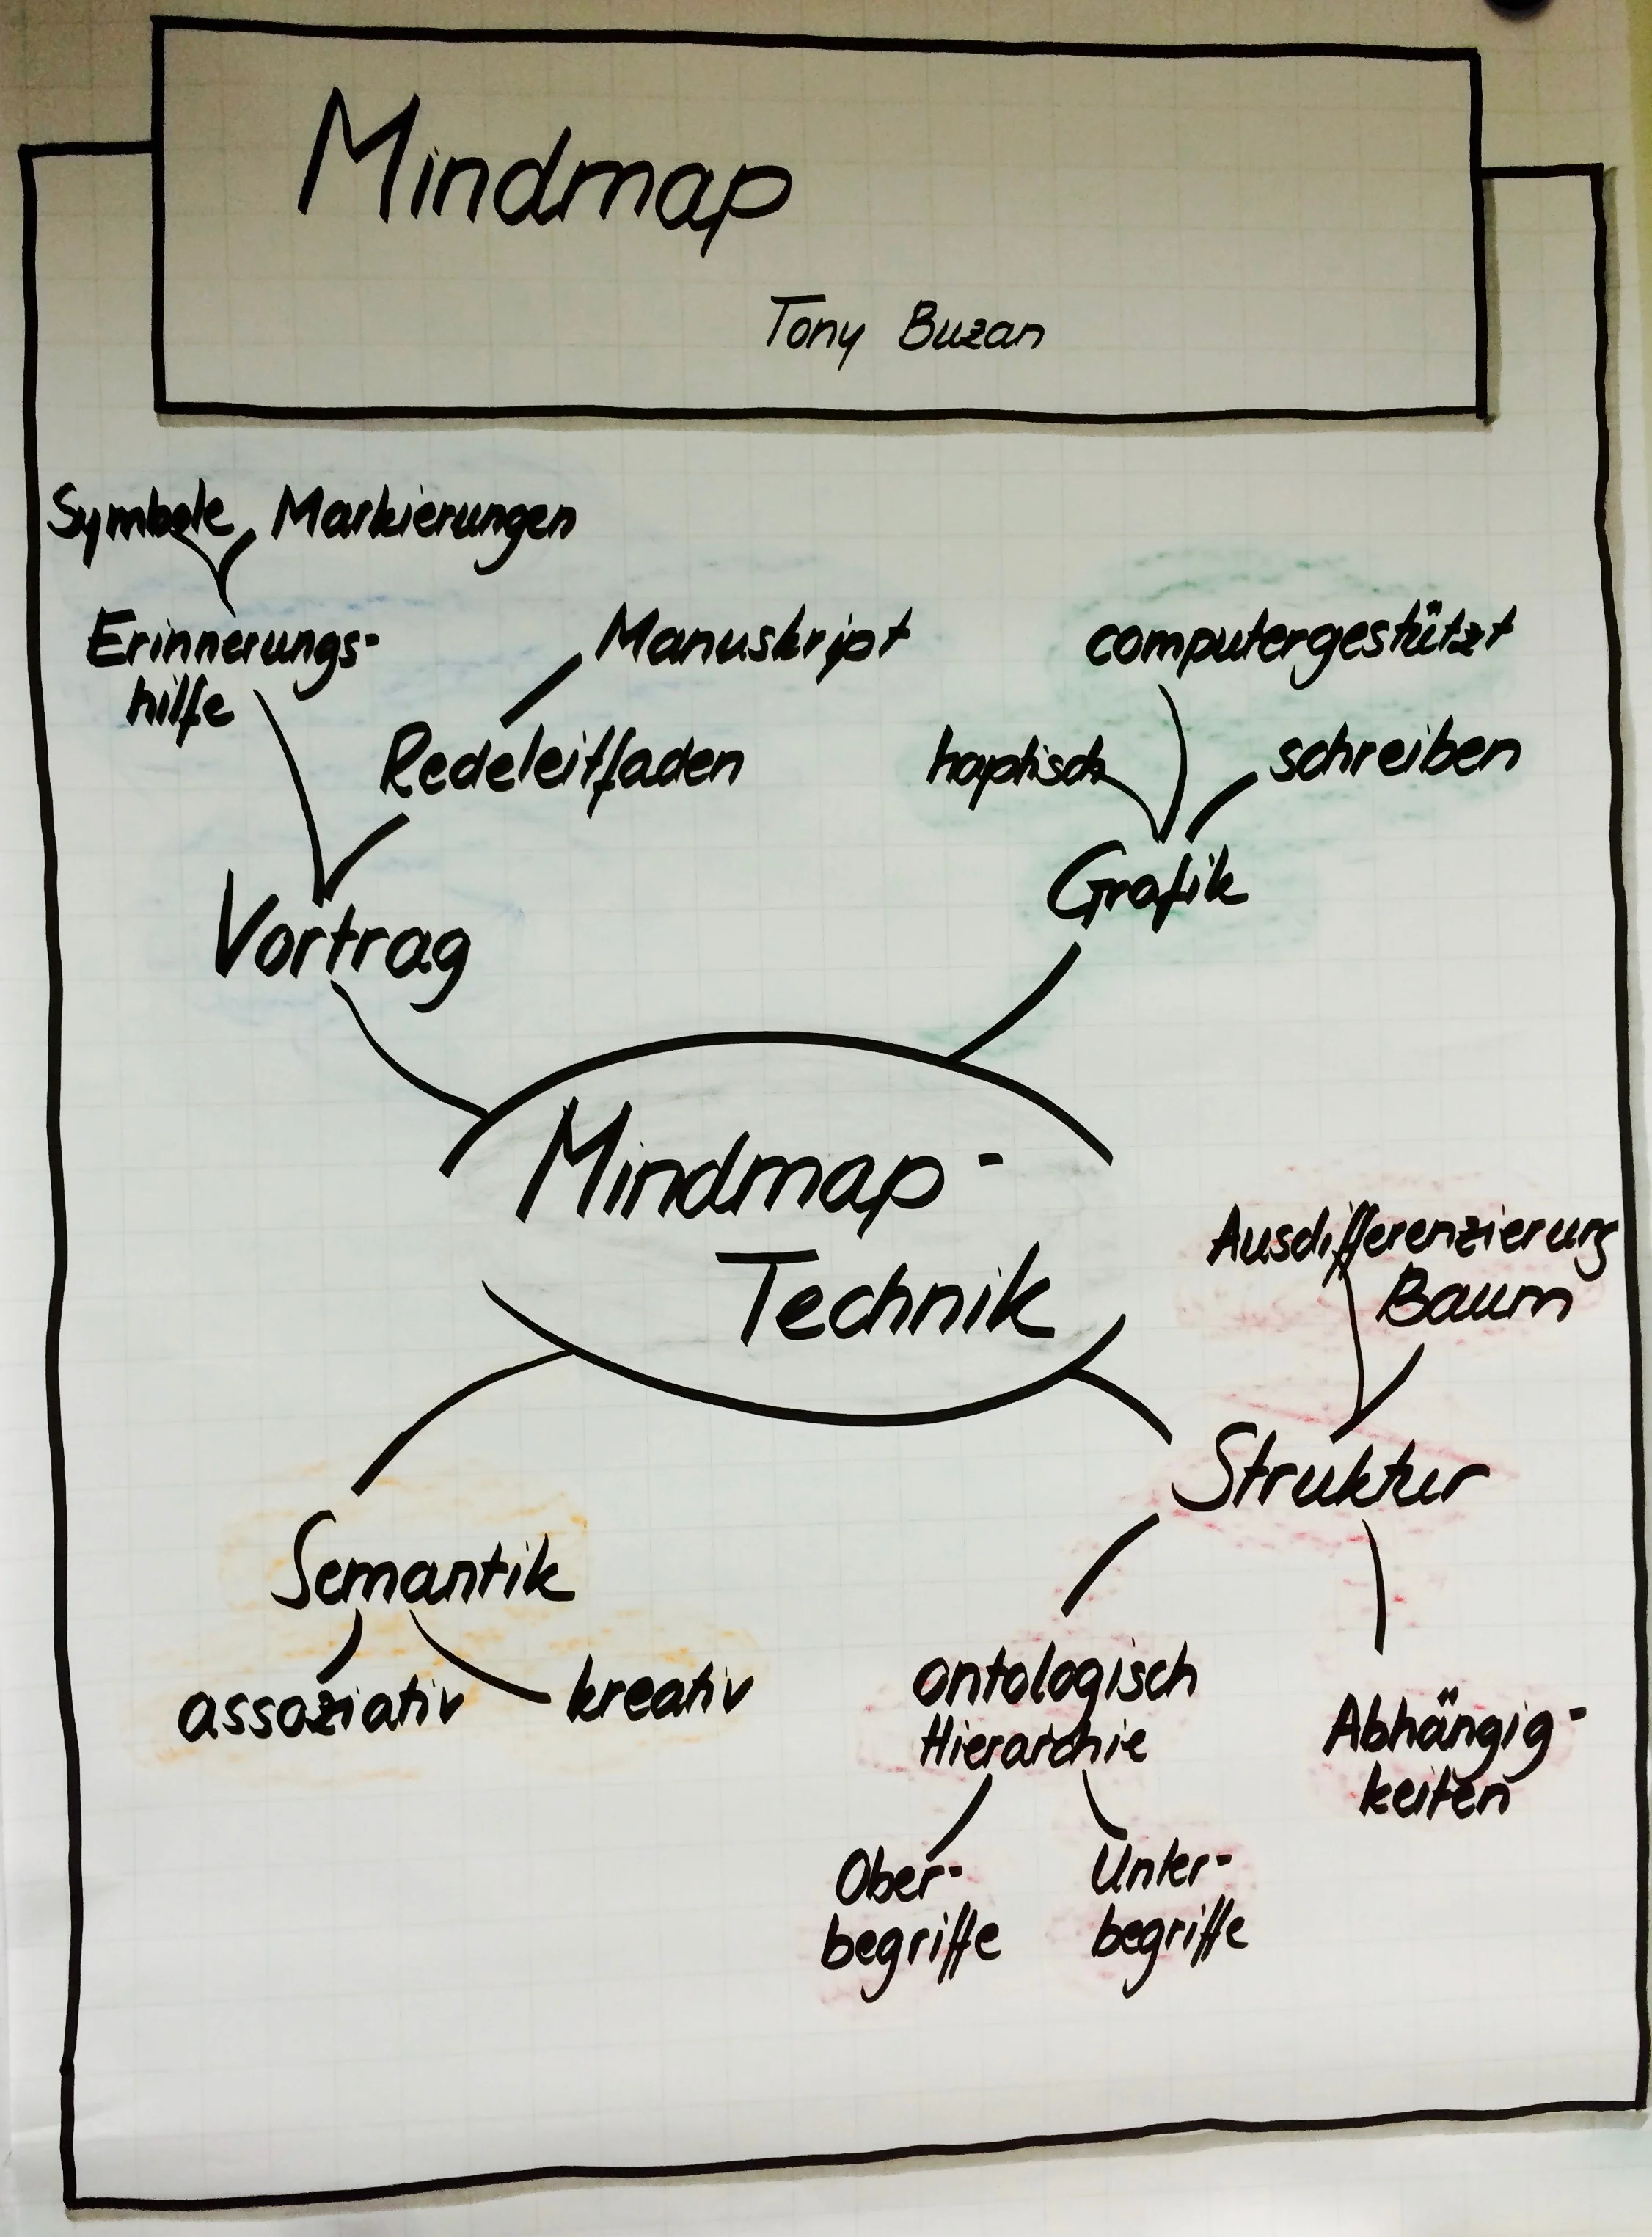 Mindmap
Tony Buzan
Symbole Markierungen
Erinnerungs-
hilfe
Manuskript
Redeleitfaden
Vortrag
computergestützt
haptisch
schreiben
Grafik
Mindmap-
Technik
Ausdifferenzierung
Baum
Struktur
Semantik
assoziativ
kreativ
ontologisch
Hierarchie
Abhängig-
keiten
Ober-
begriffe
Unter-
begriffe